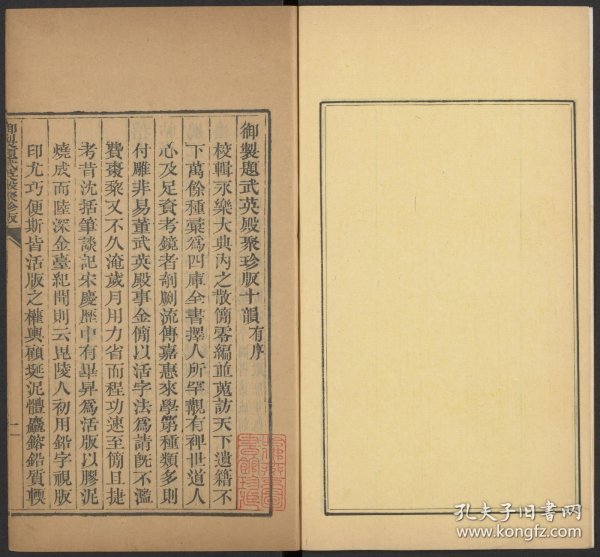 御製題武英殿聚珍版十韻有序
校輯永樂大典內之散簡零編並蒐訪天下遺籍不
下萬餘種彙為四庫全書擇人所罕覯有裨世道人
心及足資考鏡者剞劂流傳嘉惠來學第種類多則
付雕非易董武英殿事金簡以活字法為請既不濫
費棗棃又不久淹歲月用力省而程功速至簡且捷
考昔沈括筆談記宋慶歷中有畢昇為活版以膠泥
燒成而陸深金臺紀聞則云毘陵人初用鉛字視版
印尤巧便斯皆活版之權輿顧埏泥體麤鎔鉛質輭
御製題武英殿聚珍版
一
孔夫子旧书网
www.kongfz.com